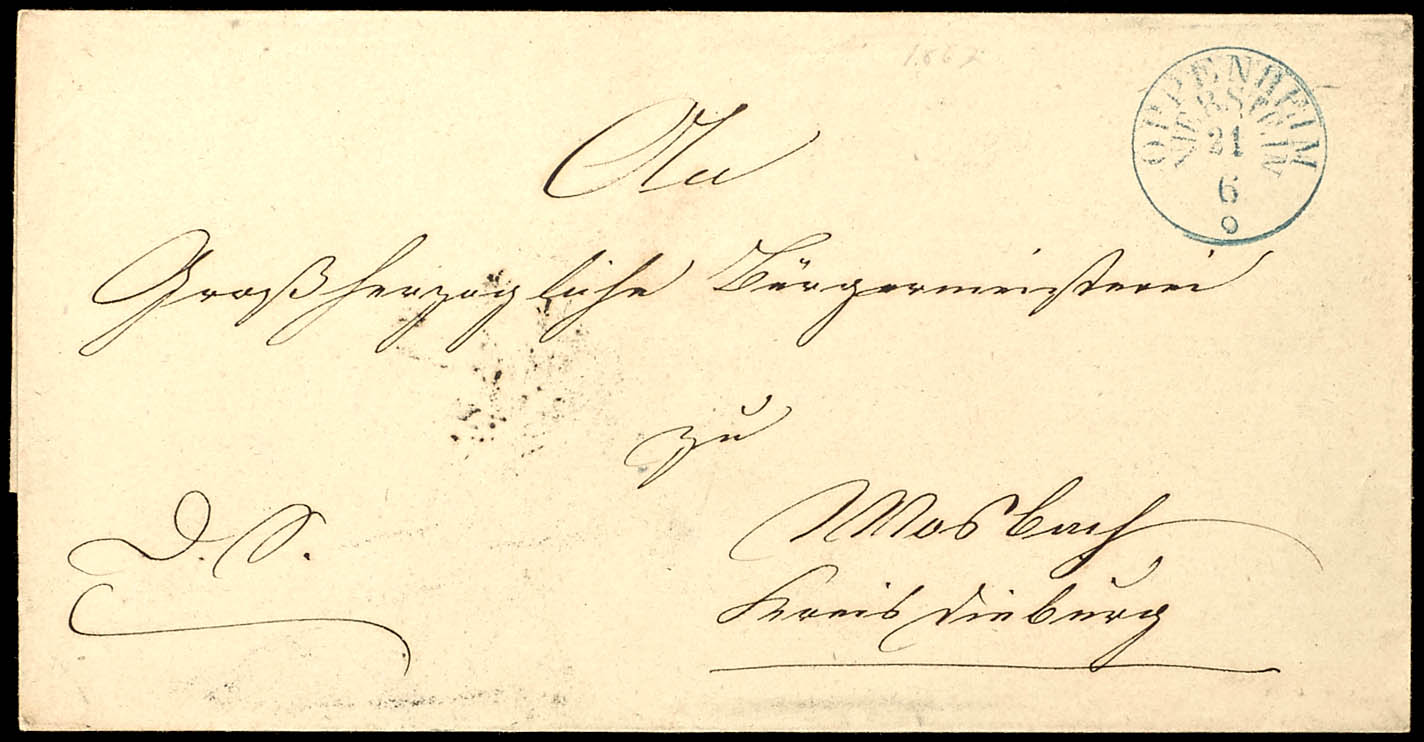 1867
OPPENHEIM
NIERSTEIN
21
6
An
Großherzogliche Bürgermeisterei
zu
Mosbach
D. S.
Kreis Dieburg